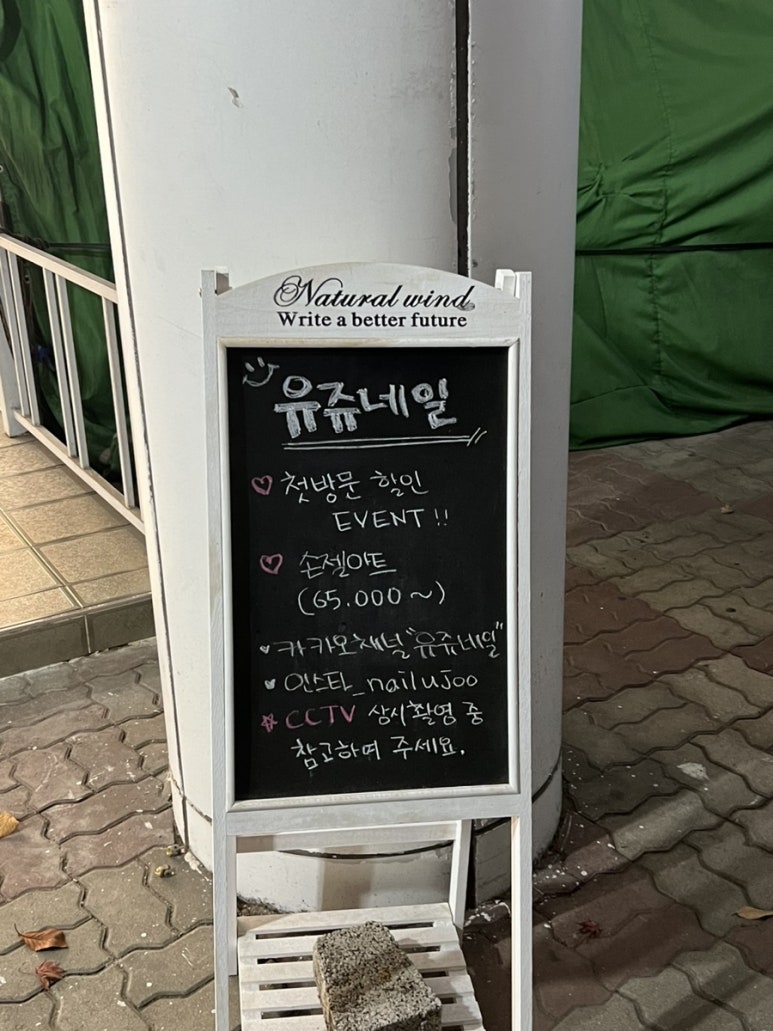 Natural wind
Write a better future
유쥬네일
첫방문 할인
EVENT!!
손젤아트
(65.000~)
카카오채널"유쥬네일"
인스타_nailujoo
CCTV 상시촬영 중
참고하여 주세요.